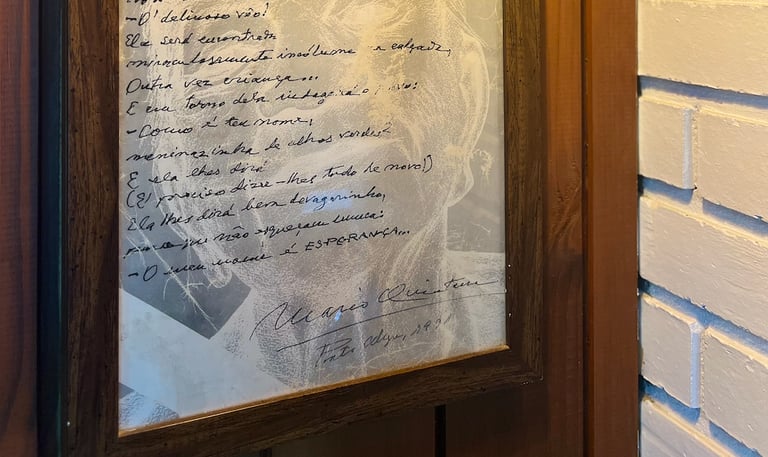 -Ó delicioso vôo!
Ela será encontrada
miraculosamente incólume na calçada,
Outra vez criança...
E em torno dela indagará o povo:
-Como é teu nome,
meninazinha de olhos verdes?
E ela lhes dirá
(É preciso dizer-lhes tudo de novo!)
Ela lhes dirá bem devagarinho,
para que não esqueçam nunca:
-O meu nome é ESPERANÇA...
Mario Quintana
Porto Alegre,